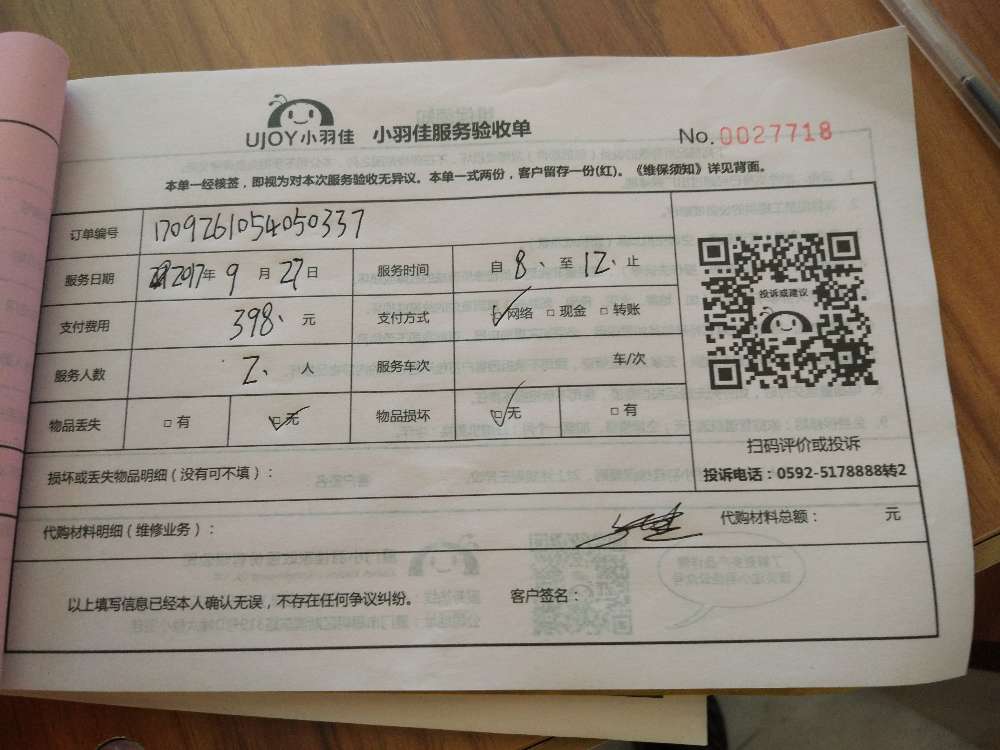 UJOY小羽佳 小羽佳服务验收单 No.0027718
本单一经核签，即视为对本次服务验收无异议。本单一式两份，客户留存一份(红)。《维保须知》详见背面。
订单编号 170926105405​0337
服务日期 2017年 9 月 27 日 服务时间 自 8、 至 12、止
支付费用 398、 元 支付方式 □网络 □现金 □转账
服务人数 2、 人 服务车次 车/次
物品丢失 □有 □无 物品损坏 □无 □有
投诉或建议
扫码评价或投诉
投诉电话：0592-5178888转2
损坏或丢失物品明细（没有可不填）：
代购材料明细（维修业务）： 代购材料总额： 元
以上填写信息已经本人确认无误，不存在任何争议纠纷。 客户签名：